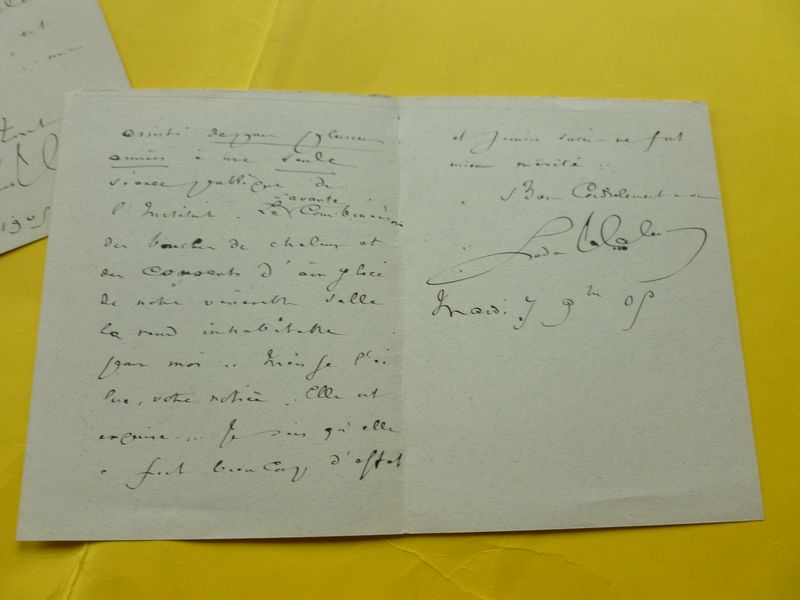 assisté depuis plusieurs
années à une seule
séance publique de
l'Institut. La savante Combinaison
des bouches de chaleur et
des courants d'air glacé
de notre vénérable salle
la rend inhabitable
pour moi .. Mais je l'ai
lue, votre notice. Elle est
exquise ... Je sais qu'elle
a fait beaucoup d'effet
et jamais succès ne fut
mieux mérité ..
Bien Cordialement
Mardi 7 9bre 05
est
1905